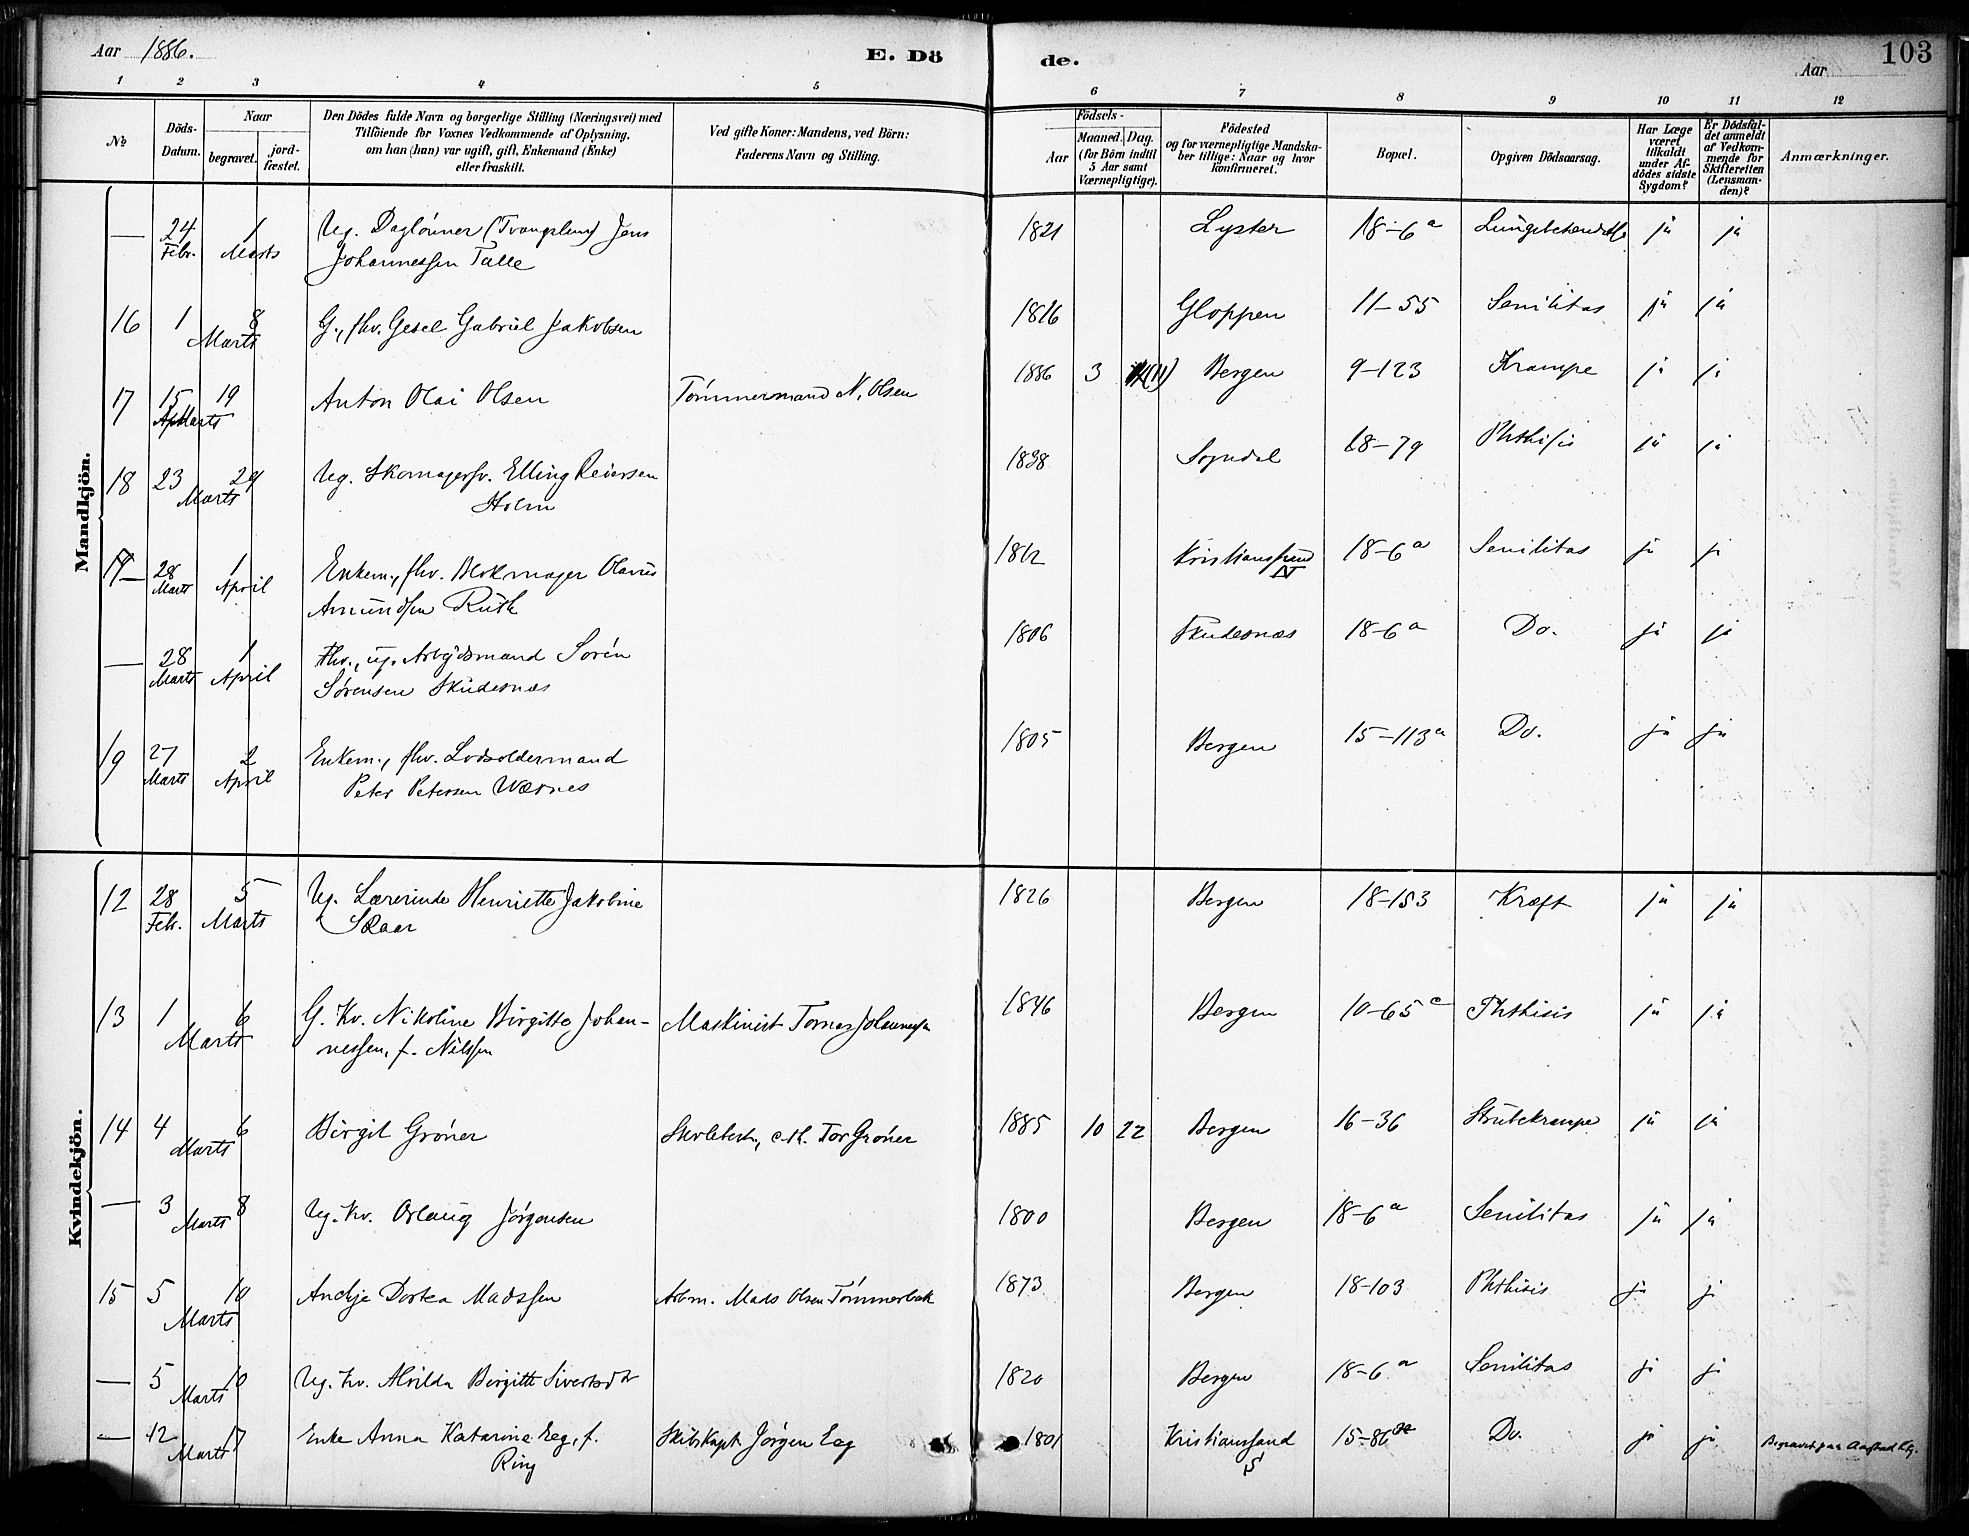 Aar 1886.
E. Dö
de.
Aar
103
1 2 3 4 5 6 7 8 9 10 11 12
No.
Döds-Datum.
Naar
begravet.
jord-fæstet.
Den Dödes fulde Navn og borgerlige Stilling (Næringsvei) med
Tilföiende for Voxnes Vedkommende af Oplysning,
om han (hun) var ugift, gift, Enkemand (Enke)
eller fraskilt.
Ved gifte Koner: Mandens, ved Börn:
Faderens Navn og Stilling.
Födsels-
Aar
Maaned. Dag.
(for Börn indtil
5 Aar samt
Værnepligtige).
Födested
og for værnepligtige Mandska-
ber tillige: Naar og hvor
konfirmeret.
Bopæl.
Opgiven Dödsaarsag.
Har Læge
været
tilkaldt
under Af-
dödes sidste
Sygdom?
Er Dödsfal-
det anmeldt
af Vedkom-
mende for
Skifteretten
(Lensman-
den)?
Anmærkninger.
Mandkjön.
— 24 Febr. 1 Marts Ug. Daglønner Jens 1821 Lyster 18-6a ja ja
Johannessen Talle
16 1 8 Marts G., fhv. Gesel Gabriel Jakobsen 1816 Gloppen 11-55 Senilitas ja ja
17 15 19 Marts Anton Olai Olsen Tømmermand N. Olsen 1886 3 (11) Bergen 9-123 Krampe ja ja
18 23 29 Marts Ug. Skomagersv. Elling Reiersen 1838 Sogndal 18-79 Phthisis ja ja
Holm
— 28 Marts 1 April Enkem., fhv. Blokmager Olaus 1812 Kristianssund N 18-6a Senilitas ja ja
Amundsen Ruth
— 28 Marts 1 April Fhv., ug. Arbeidsmand Sørén 1806 Skudesnæs 18-6a Do. ja ja
Sørensen Skudesnæs
19 27 Marts 2 April Enkem., fhv. Lodsoldermand 1805 Bergen 15-113a Do. ja ja
Peter Petersen Wærnes
Kvindekjön.
12 28 Febr. 5 Marts Ug. Lærerinde Henriette Jakobine 1826 Bergen 18-153 Kræft ja ja
13 1 6 Marts G. Kv. Nikoline Birgitte Johan- Maskinist Johannessen 1846 Bergen 10-65c Phthisis ja ja
nessen, f. Nilssen
14 4 6 Marts Birgit Grøner Tor Grøner 1885 10 22 Bergen 16-36 Strubekrampe ja ja
— 3 8 Marts Ug. Kv. Orlaug Jørgensen 1800 Bergen 18-6a Senilitas ja ja
15 5 10 Marts Andje Dortea Madssen Arbm. Mads Olsen Tømmerbak 1873 Bergen 18-103 Phthisis ja ja
— 5 10 Marts Ug. Kv. Alvilda Birgitte Sivertsdtr 1820 Bergen 18-6a Senilitas ja ja
— 12 17 Marts Enke Anna Katarina Eeg, f. Skibskapt. Jørgen Eeg 1801 Kristianssand S 15-86 Do. ja ja Begravet paa Aarstad Kg.
Ring